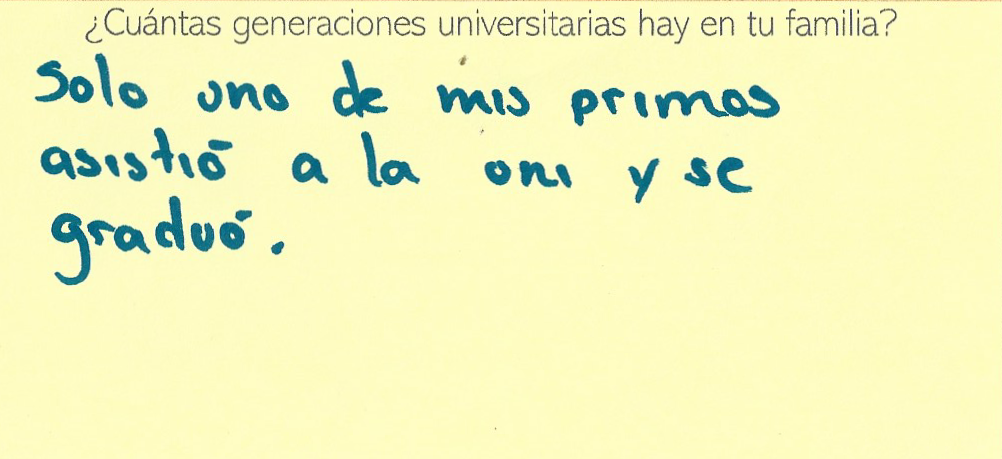 ¿Cuántas generaciones universitarias hay en tu familia?
Solo uno de mis primos
asistió a la uni y se
graduó.